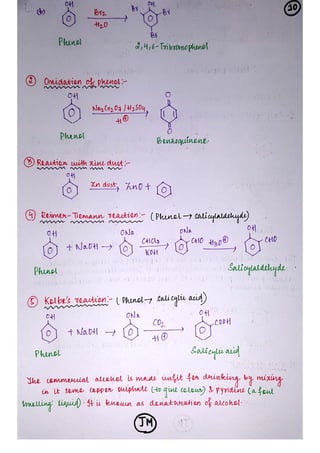 30
(b) OH Br2 H2O OH Br Br Br
Phenol 2,4,6-Tribromophenol
② Oxidation of phenol:-
OH Na2Cr2O7/H2SO4 H⊕ O O
Phenol Benzoquinone
③ Reaction with zinc dust:-
OH Zn dust ZnO +
④ Reimer-Tiemann reaction:- (Phenol → Salicylaldehyde)
OH + NaOH → ONa CHCl3 KOH ONa CHO H3O⊕ OH CHO
Phenol Salicylaldehyde
⑤ Kolbe's reaction:- (Phenol → Salicylic acid)
OH + NaOH → ONa CO2 H⊕ OH COOH
Phenol Salicylic acid
The commercial alcohol is made unfit for drinking by mixing
in it some copper sulphate (to give colour) & pyridine (a foul
smelling liquid). It is known as denaturation of alcohol.
JM